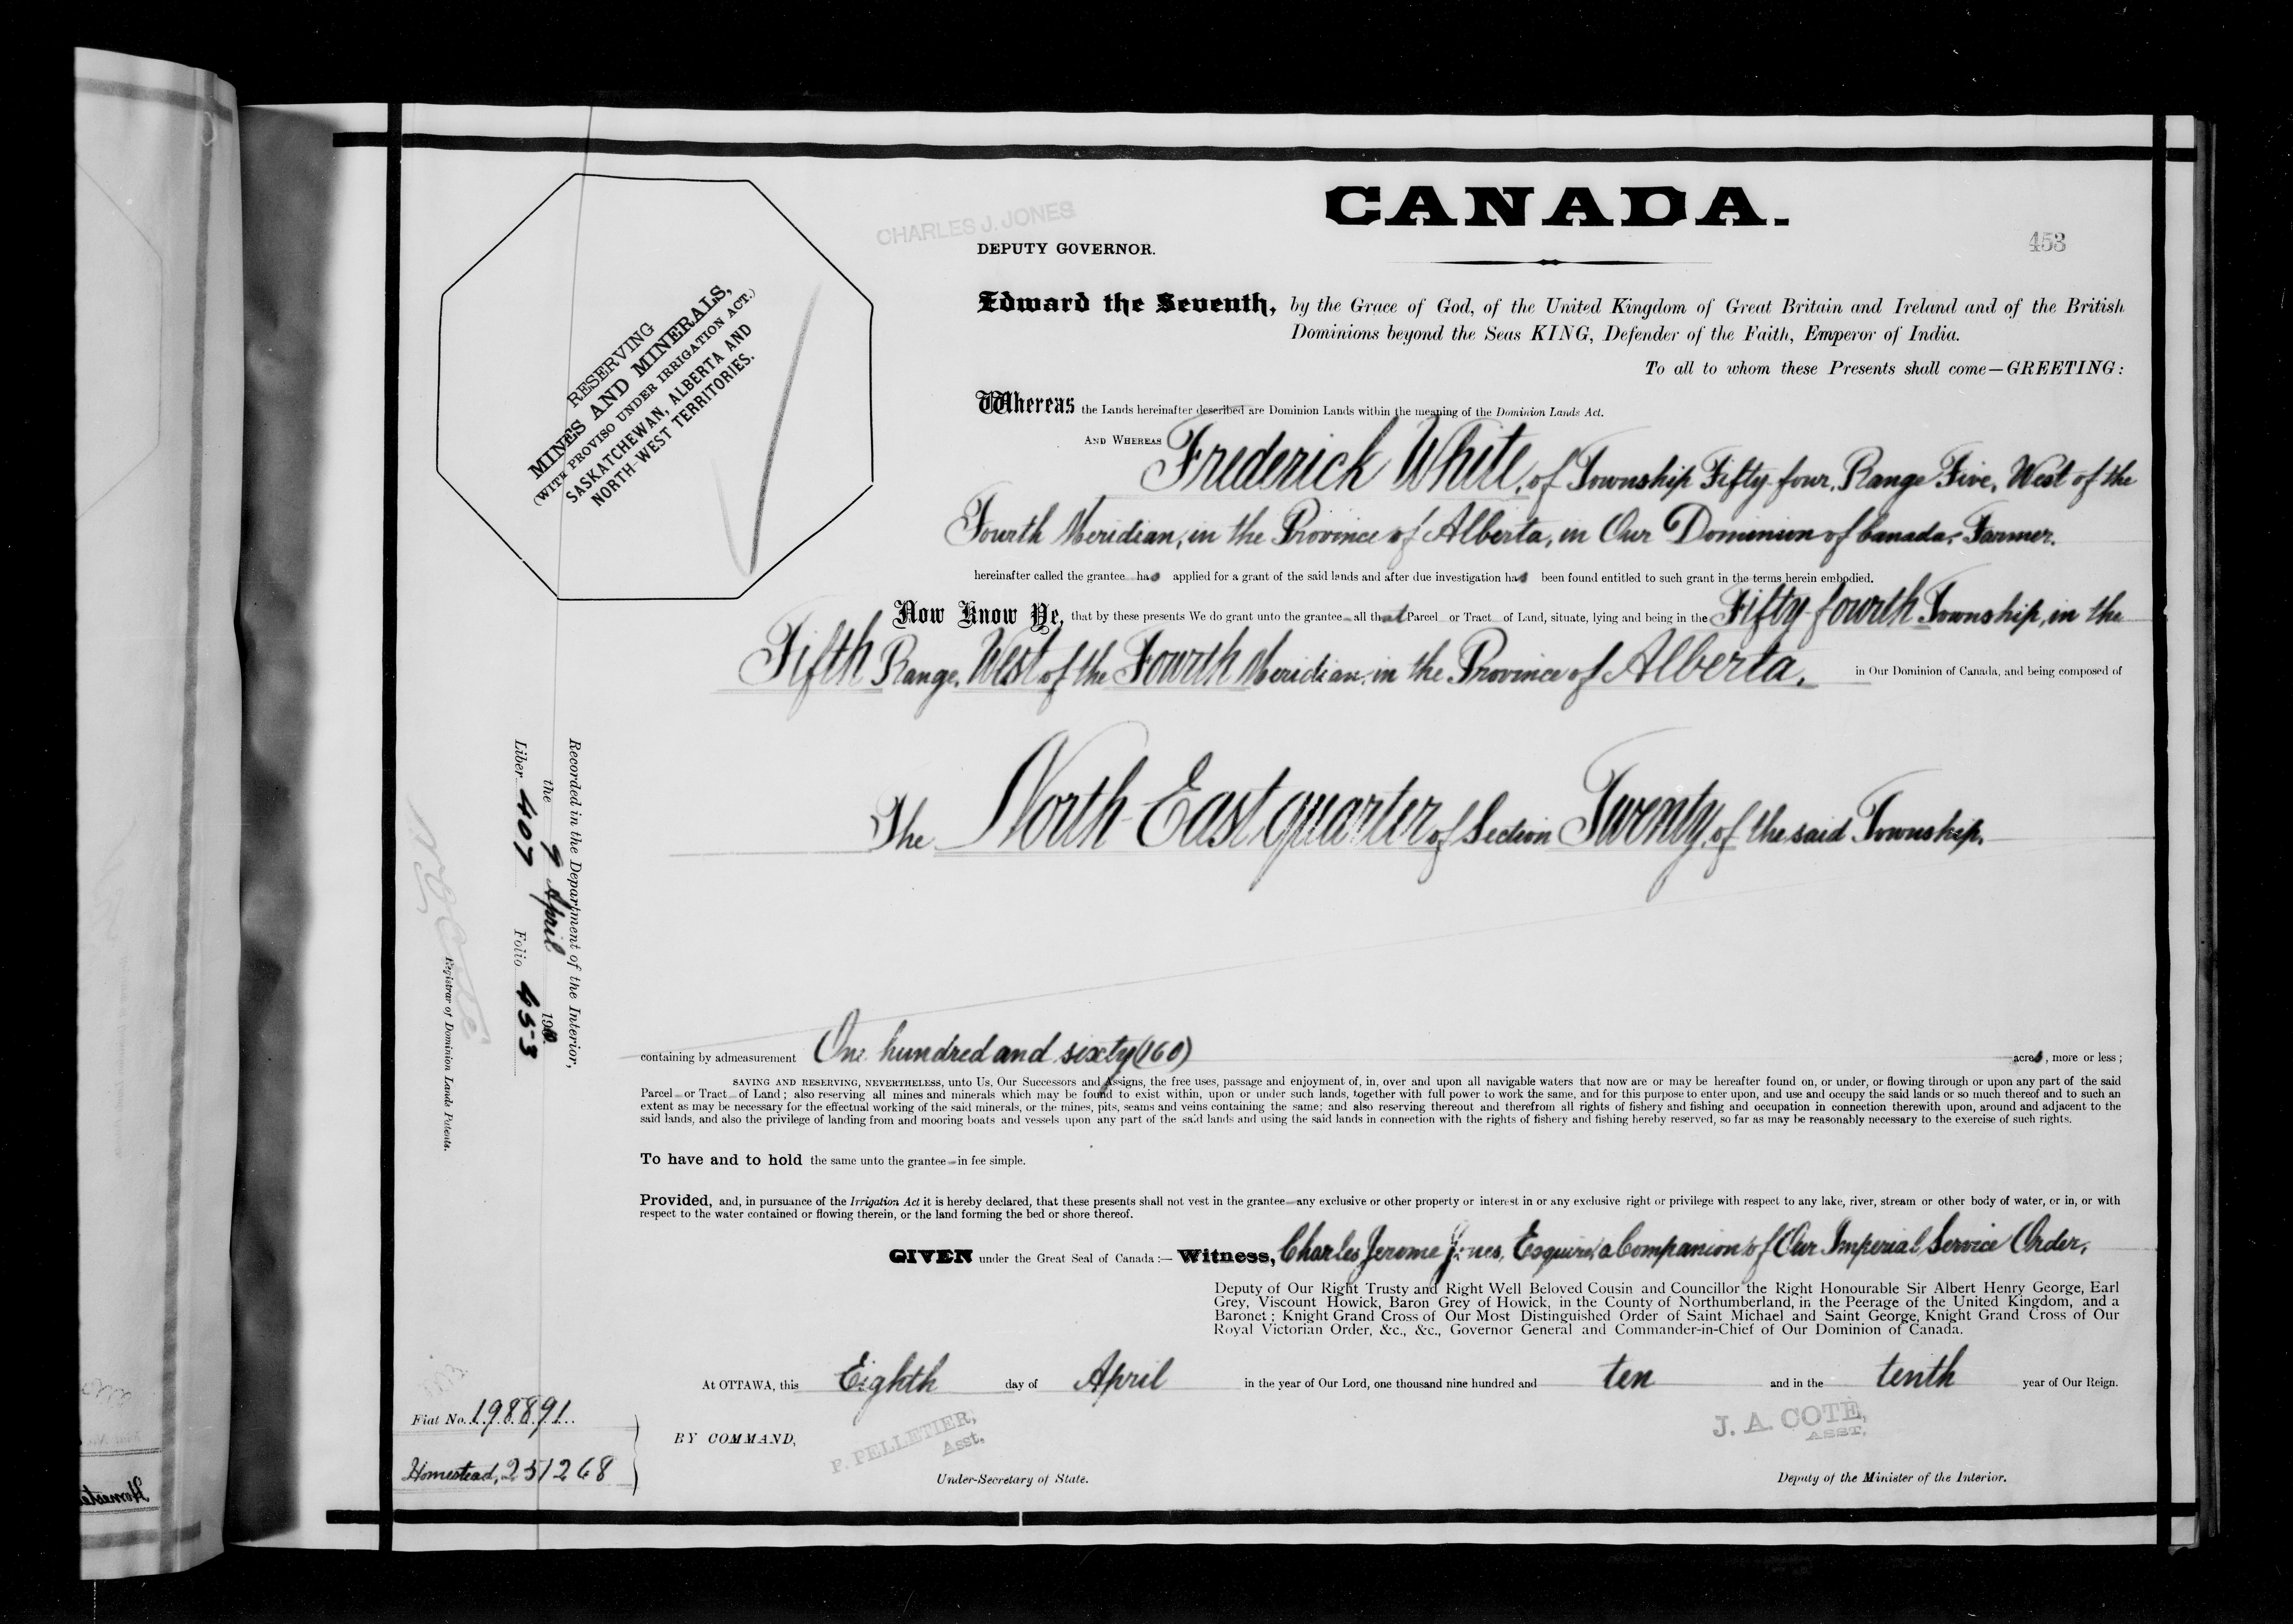 CANADA.
CHARLES J. JONES
DEPUTY GOVERNOR.
453
RESERVING
MINES AND MINERALS,
(WITH PROVISO UNDER IRRIGATION ACT.)
SASKATCHEWAN, ALBERTA AND
NORTH-WEST TERRITORIES.
Edward the Seventh, by the Grace of God, of the United Kingdom of Great Britain and Ireland and of the British
Dominions beyond the Seas KING, Defender of the Faith, Emperor of India.
To all to whom these Presents shall come—GREETING:
Whereas the Lands hereinafter described are Dominion Lands within the meaning of the Dominion Lands Act.
AND WHEREAS Frederick White, of Township Fifty-four, Range Five, West of the
Fourth Meridian, in the Province of Alberta, in Our Dominion of Canada, Farmer.
hereinafter called the grantee has applied for a grant of the said lands and after due investigation has been found entitled to such grant in the terms herein embodied.
Now Know Ye, that by these presents We do grant unto the grantee all that Parcel or Tract of Land, situate, lying and being in the Fifty-fourth Township, in the
Fifth Range, West of the Fourth Meridian, in the Province of Alberta, in Our Dominion of Canada, and being composed of
The North-East quarter of Section Twenty, of the said Township.
containing by admeasurement One hundred and sixty (160) acres, more or less;
SAVING AND RESERVING, NEVERTHELESS, unto Us, Our Successors and Assigns, the free uses, passage and enjoyment of, in, over and upon all navigable waters that now are or may be hereafter found on, or under, or flowing through or upon any part of the said
Parcel or Tract of Land; also reserving all mines and minerals which may be found to exist within, upon or under such lands, together with full power to work the same, and for this purpose to enter upon, and use and occupy the said lands or so much thereof and to such an
extent as may be necessary for the effectual working of the said minerals, or the mines, pits, seams and veins containing the same; and also reserving thereout and therefrom all rights of fishery and fishing and occupation in connection therewith upon, around and adjacent to the
said lands, and also the privilege of landing from and mooring boats and vessels upon any part of the said lands and using the said lands in connection with the rights of fishery and fishing hereby reserved, so far as may be reasonably necessary to the exercise of such rights.
To have and to hold the same unto the grantee in fee simple.
Provided, and, in pursuance of the Irrigation Act it is hereby declared, that these presents shall not vest in the grantee any exclusive or other property or interest in or any exclusive right or privilege with respect to any lake, river, stream or other body of water, or in, or with
respect to the water contained or flowing therein, or the land forming the bed or shore thereof.
GIVEN under the Great Seal of Canada:— Witness, Charles Jerome Jones, Esquire, a Companion of Our Imperial Service Order,
Deputy of Our Right Trusty and Right Well Beloved Cousin and Councillor the Right Honourable Sir Albert Henry George, Earl
Grey, Viscount Howick, Baron Grey of Howick, in the County of Northumberland, in the Peerage of the United Kingdom, and a
Baronet; Knight Grand Cross of Our Most Distinguished Order of Saint Michael and Saint George, Knight Grand Cross of Our
Royal Victorian Order, &c., &c., Governor General and Commander-in-Chief of Our Dominion of Canada.
At OTTAWA, this Eighth day of April in the year of Our Lord, one thousand nine hundred and ten and in the tenth year of Our Reign.
BY COMMAND,
F. PELLETIER,
Asst.
Under-Secretary of State.
J. A. COTE,
ASST.
Deputy of the Minister of the Interior.
Recorded in the Department of the Interior,
the 9 April 1910.
Liber 407 Folio 453
N O Coté
Registrar of Dominion Lands Patents.
Fiat No. 198891.
Homestead, 251268